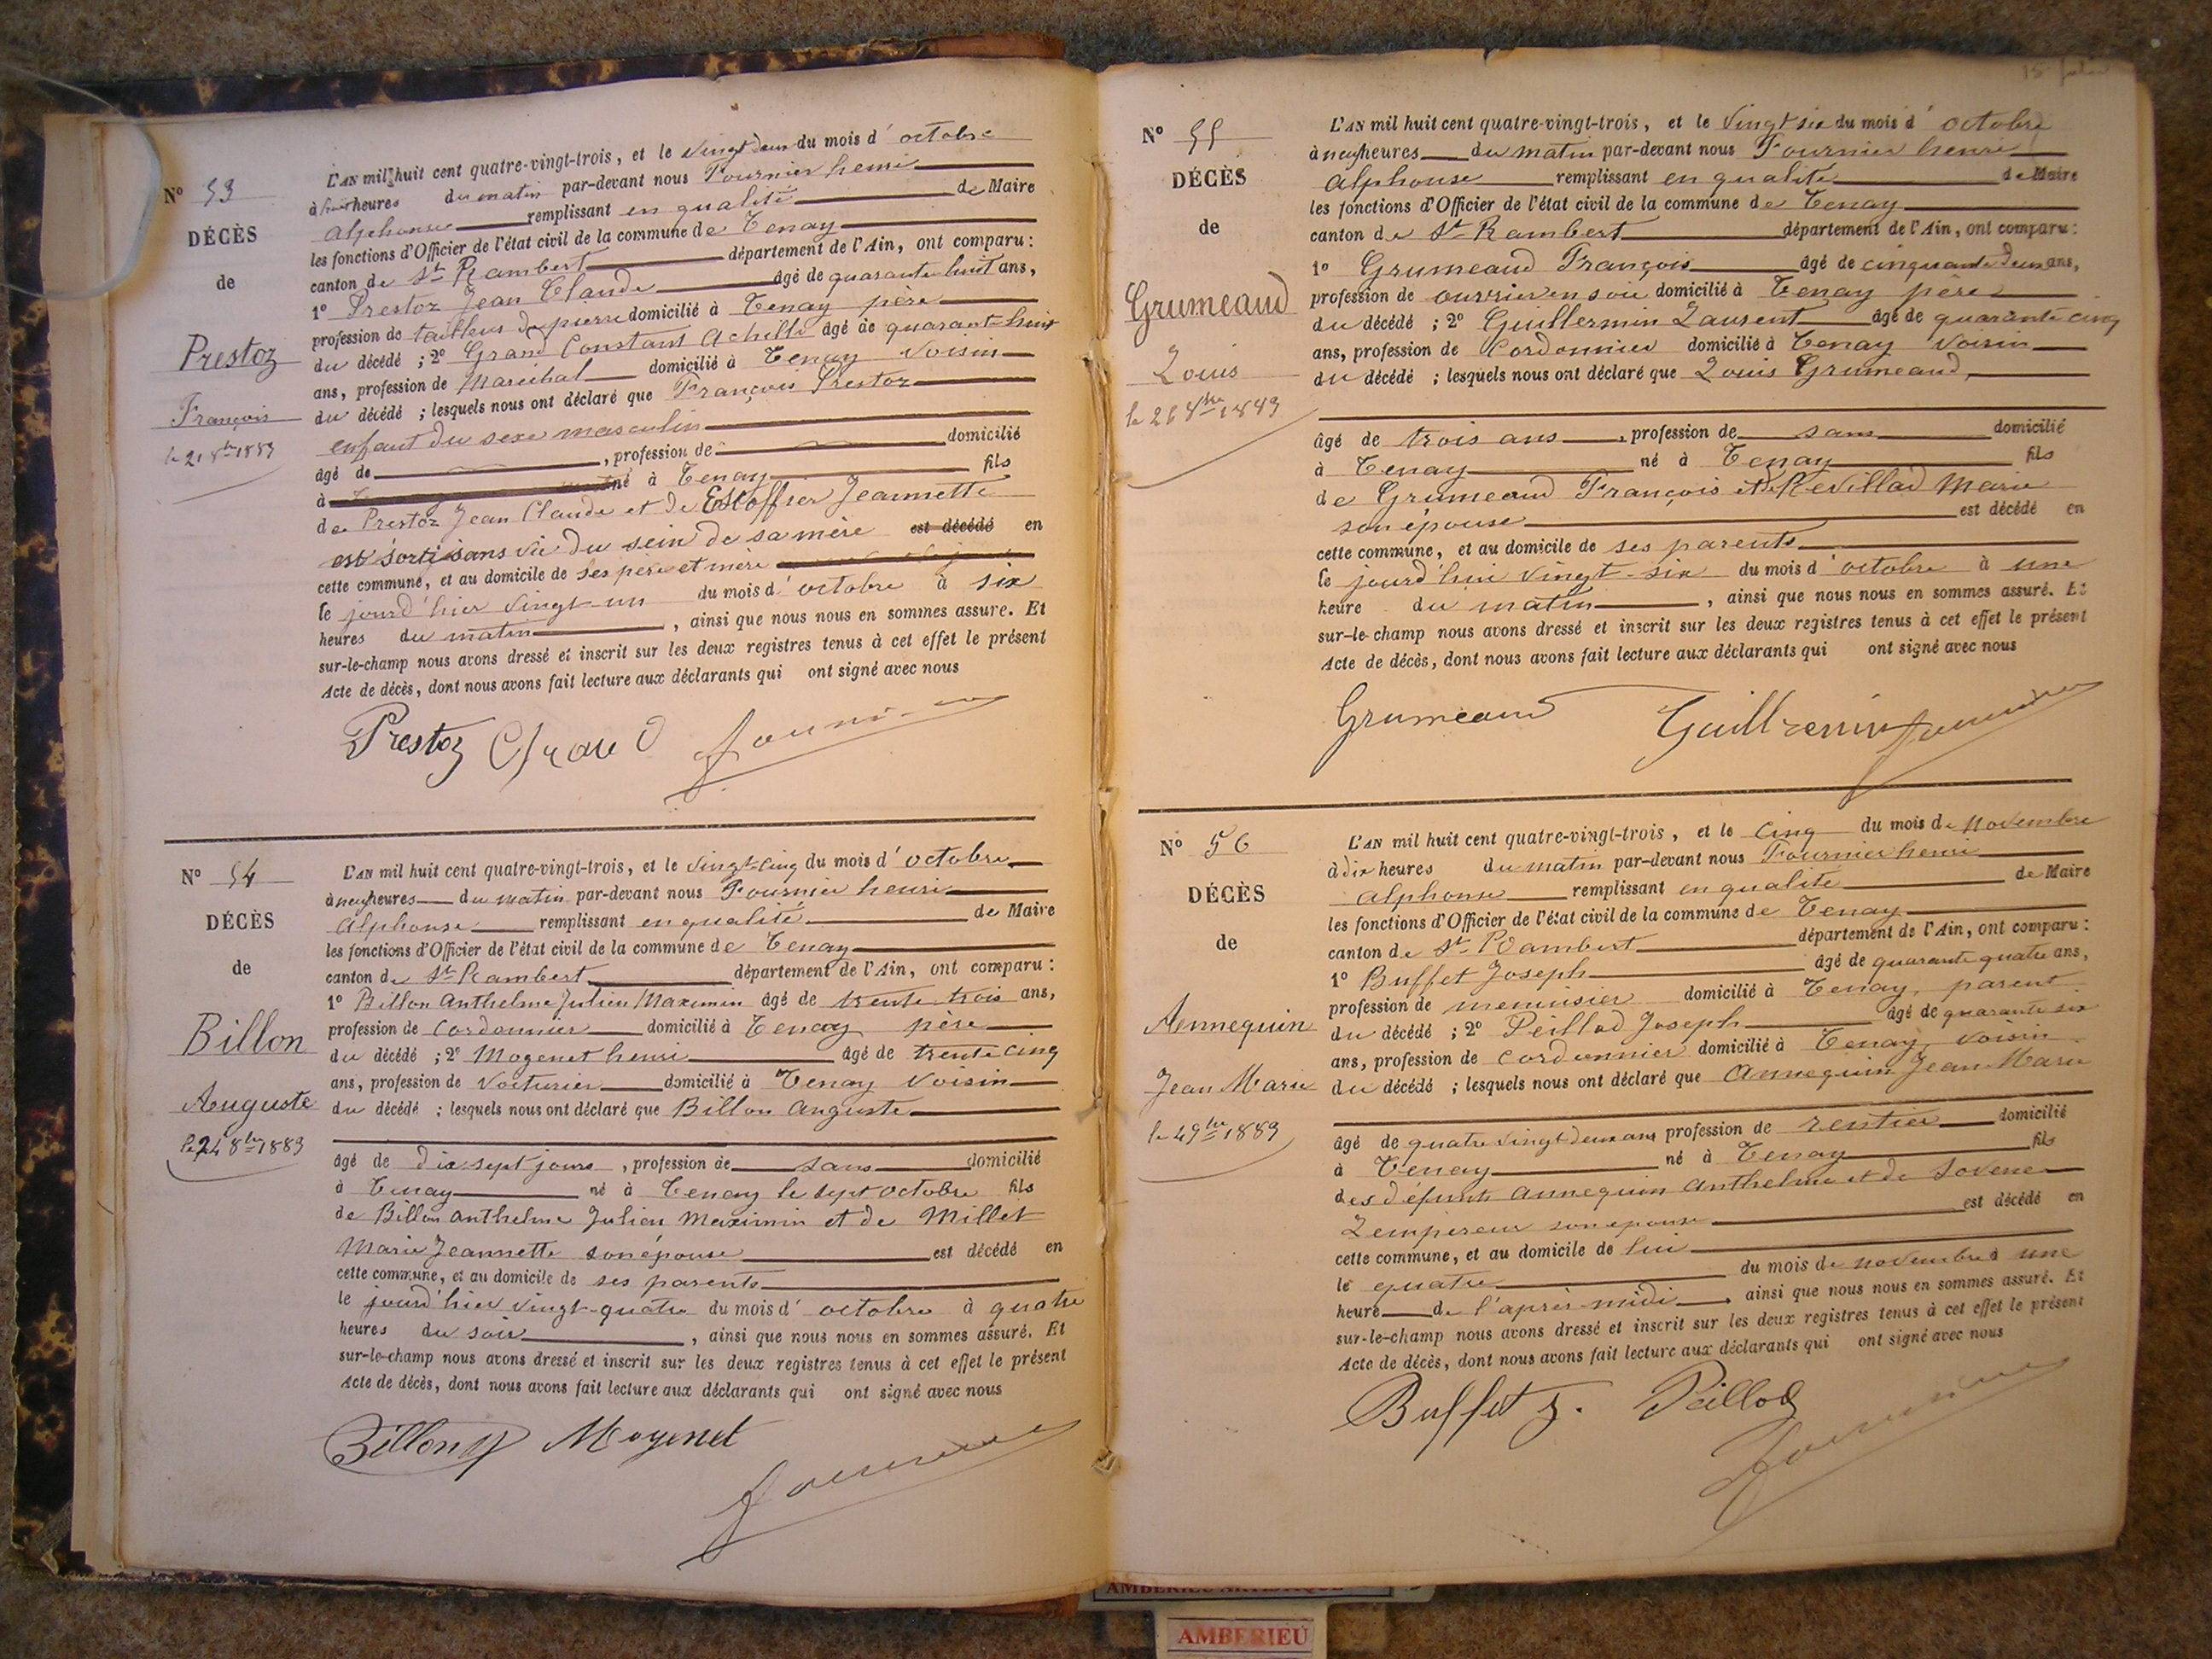 N° 53
DÉCÈS
de
Prestoz
François
le 21 8bre 1883
L'AN mil huit cent quatre-vingt-trois, et le vingt deux du mois d'octobre
à heures du matin par-devant nous Fournier henri
Alphonse remplissant en qualité de Maire
les fonctions d'Officier de l'état civil de la commune de Tenay
canton de St Rambert département de l'Ain, ont comparu :
1° Prestoz Jean Claude âgé de quarante huit ans,
profession de tailleur de pierre domicilié à Tenay père
du décédé ; 2° Grand Constant Achille âgé de quarante huit
ans, profession de Maréchal domicilié à Tenay voisin
du décédé ; lesquels nous ont déclaré que François Prestoz
enfant du sexe masculin
âgé de , profession de domicilié
à né à Tenay fils
de Prestoz Jean Claude et de Estoffier Jeannette
est sorti sans vie du sein de sa mère est décédé en
cette commune, et au domicile de ses père et mère
le jourd'hier vingt-un du mois d'octobre à six
heures du matin , ainsi que nous nous en sommes assuré. Et
sur-le-champ nous avons dressé et inscrit sur les deux registres tenus à cet effet le présent
Acte de décès, dont nous avons fait lecture aux déclarants qui ont signé avec nous
Prestoz Grand Fournier
N° 54
DÉCÈS
de
Billon
Auguste
le 24 8bre 1883
L'AN mil huit cent quatre-vingt-trois, et le vingt-cinq du mois d'octobre
à neuf heures du matin par-devant nous Fournier henri
Alphonse remplissant en qualité de Maire
les fonctions d'Officier de l'état civil de la commune de Tenay
canton de St Rambert département de l'Ain, ont comparu :
1° Billon Anthelme Julien Maximin âgé de trente trois ans,
profession de cordonnier domicilié à Tenay père
du décédé ; 2° Mogenet henri âgé de trente cinq
ans, profession de voiturier domicilié à Tenay voisin
du décédé ; lesquels nous ont déclaré que Billon Auguste
âgé de dix sept jours , profession de sans domicilié
à Tenay né à Tenay le sept octobre fils
de Billon Anthelme Julien Maximin et de Millet
Marie Jeannette son épouse est décédé en
cette commune, et au domicile de ses parents
le jourd'hier vingt-quatre du mois d'octobre à quatre
heures du soir , ainsi que nous nous en sommes assuré. Et
sur-le-champ nous avons dressé et inscrit sur les deux registres tenus à cet effet le présent
Acte de décès, dont nous avons fait lecture aux déclarants qui ont signé avec nous
Billon Mogenet
Fournier
N° 55
DÉCÈS
de
Grumeaud
Louis
le 26 8bre 1883
L'AN mil huit cent quatre-vingt-trois, et le vingt six du mois d'octobre
à neuf heures du matin par-devant nous Fournier henri
Alphonse remplissant en qualité de Maire
les fonctions d'Officier de l'état civil de la commune de Tenay
canton de St Rambert département de l'Ain, ont comparu :
1° Grumeaud François âgé de cinquante deux ans,
profession de ouvrier en soie domicilié à Tenay père
du décédé ; 2° Guillermin Laurent âgé de quarante cinq
ans, profession de Cordonnier domicilié à Tenay voisin
du décédé ; lesquels nous ont déclaré que Louis Grumeaud,
âgé de trois ans , profession de sans domicilié
à Tenay né à Tenay fils
de Grumeaud François et de Revillod Marie
son épouse est décédé en
cette commune, et au domicile de ses parents
le jourd'hui vingt-six du mois d'octobre à une
heure du matin , ainsi que nous nous en sommes assuré. Et
sur-le-champ nous avons dressé et inscrit sur les deux registres tenus à cet effet le présent
Acte de décès, dont nous avons fait lecture aux déclarants qui ont signé avec nous
Grumeaud Guillermin Fournier
N° 56
DÉCÈS
de
Annequin
Jean Marie
le 4 9bre 1883
L'AN mil huit cent quatre-vingt-trois, et le cinq du mois de novembre
à dix heures du matin par-devant nous Fournier henri
Alphonse remplissant en qualité de Maire
les fonctions d'Officier de l'état civil de la commune de Tenay
canton de St Rambert département de l'Ain, ont comparu :
1° Buffet Joseph âgé de quarante quatre ans,
profession de menuisier domicilié à Tenay, parent
du décédé ; 2° Peillod Joseph âgé de quarante six
ans, profession de cordonnier domicilié à Tenay, voisin
du décédé ; lesquels nous ont déclaré que Annequin Jean Marie
âgé de quatre vingt deux ans profession de rentier domicilié
à Tenay né à Tenay fils
des défunts Annequin Anthelme et de
Lempereur son épouse est décédé en
cette commune, et au domicile de lui
le quatre du mois de novembre à une
heure de l'après-midi , ainsi que nous nous en sommes assuré. Et
sur-le-champ nous avons dressé et inscrit sur les deux registres tenus à cet effet le présent
Acte de décès, dont nous avons fait lecture aux déclarants qui ont signé avec nous
Buffet J. Peillod
Fournier
AMBERIEU